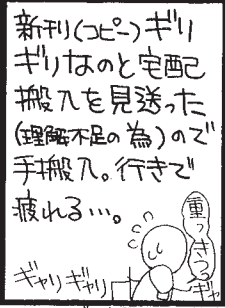 新刊(コピー)ギリ
ギリなのと宅配
搬入を見送った
(理解不足の為)ので
手搬入。行きで
疲れる…。
重っ
きっつ
ギャリギャリ
ギャ